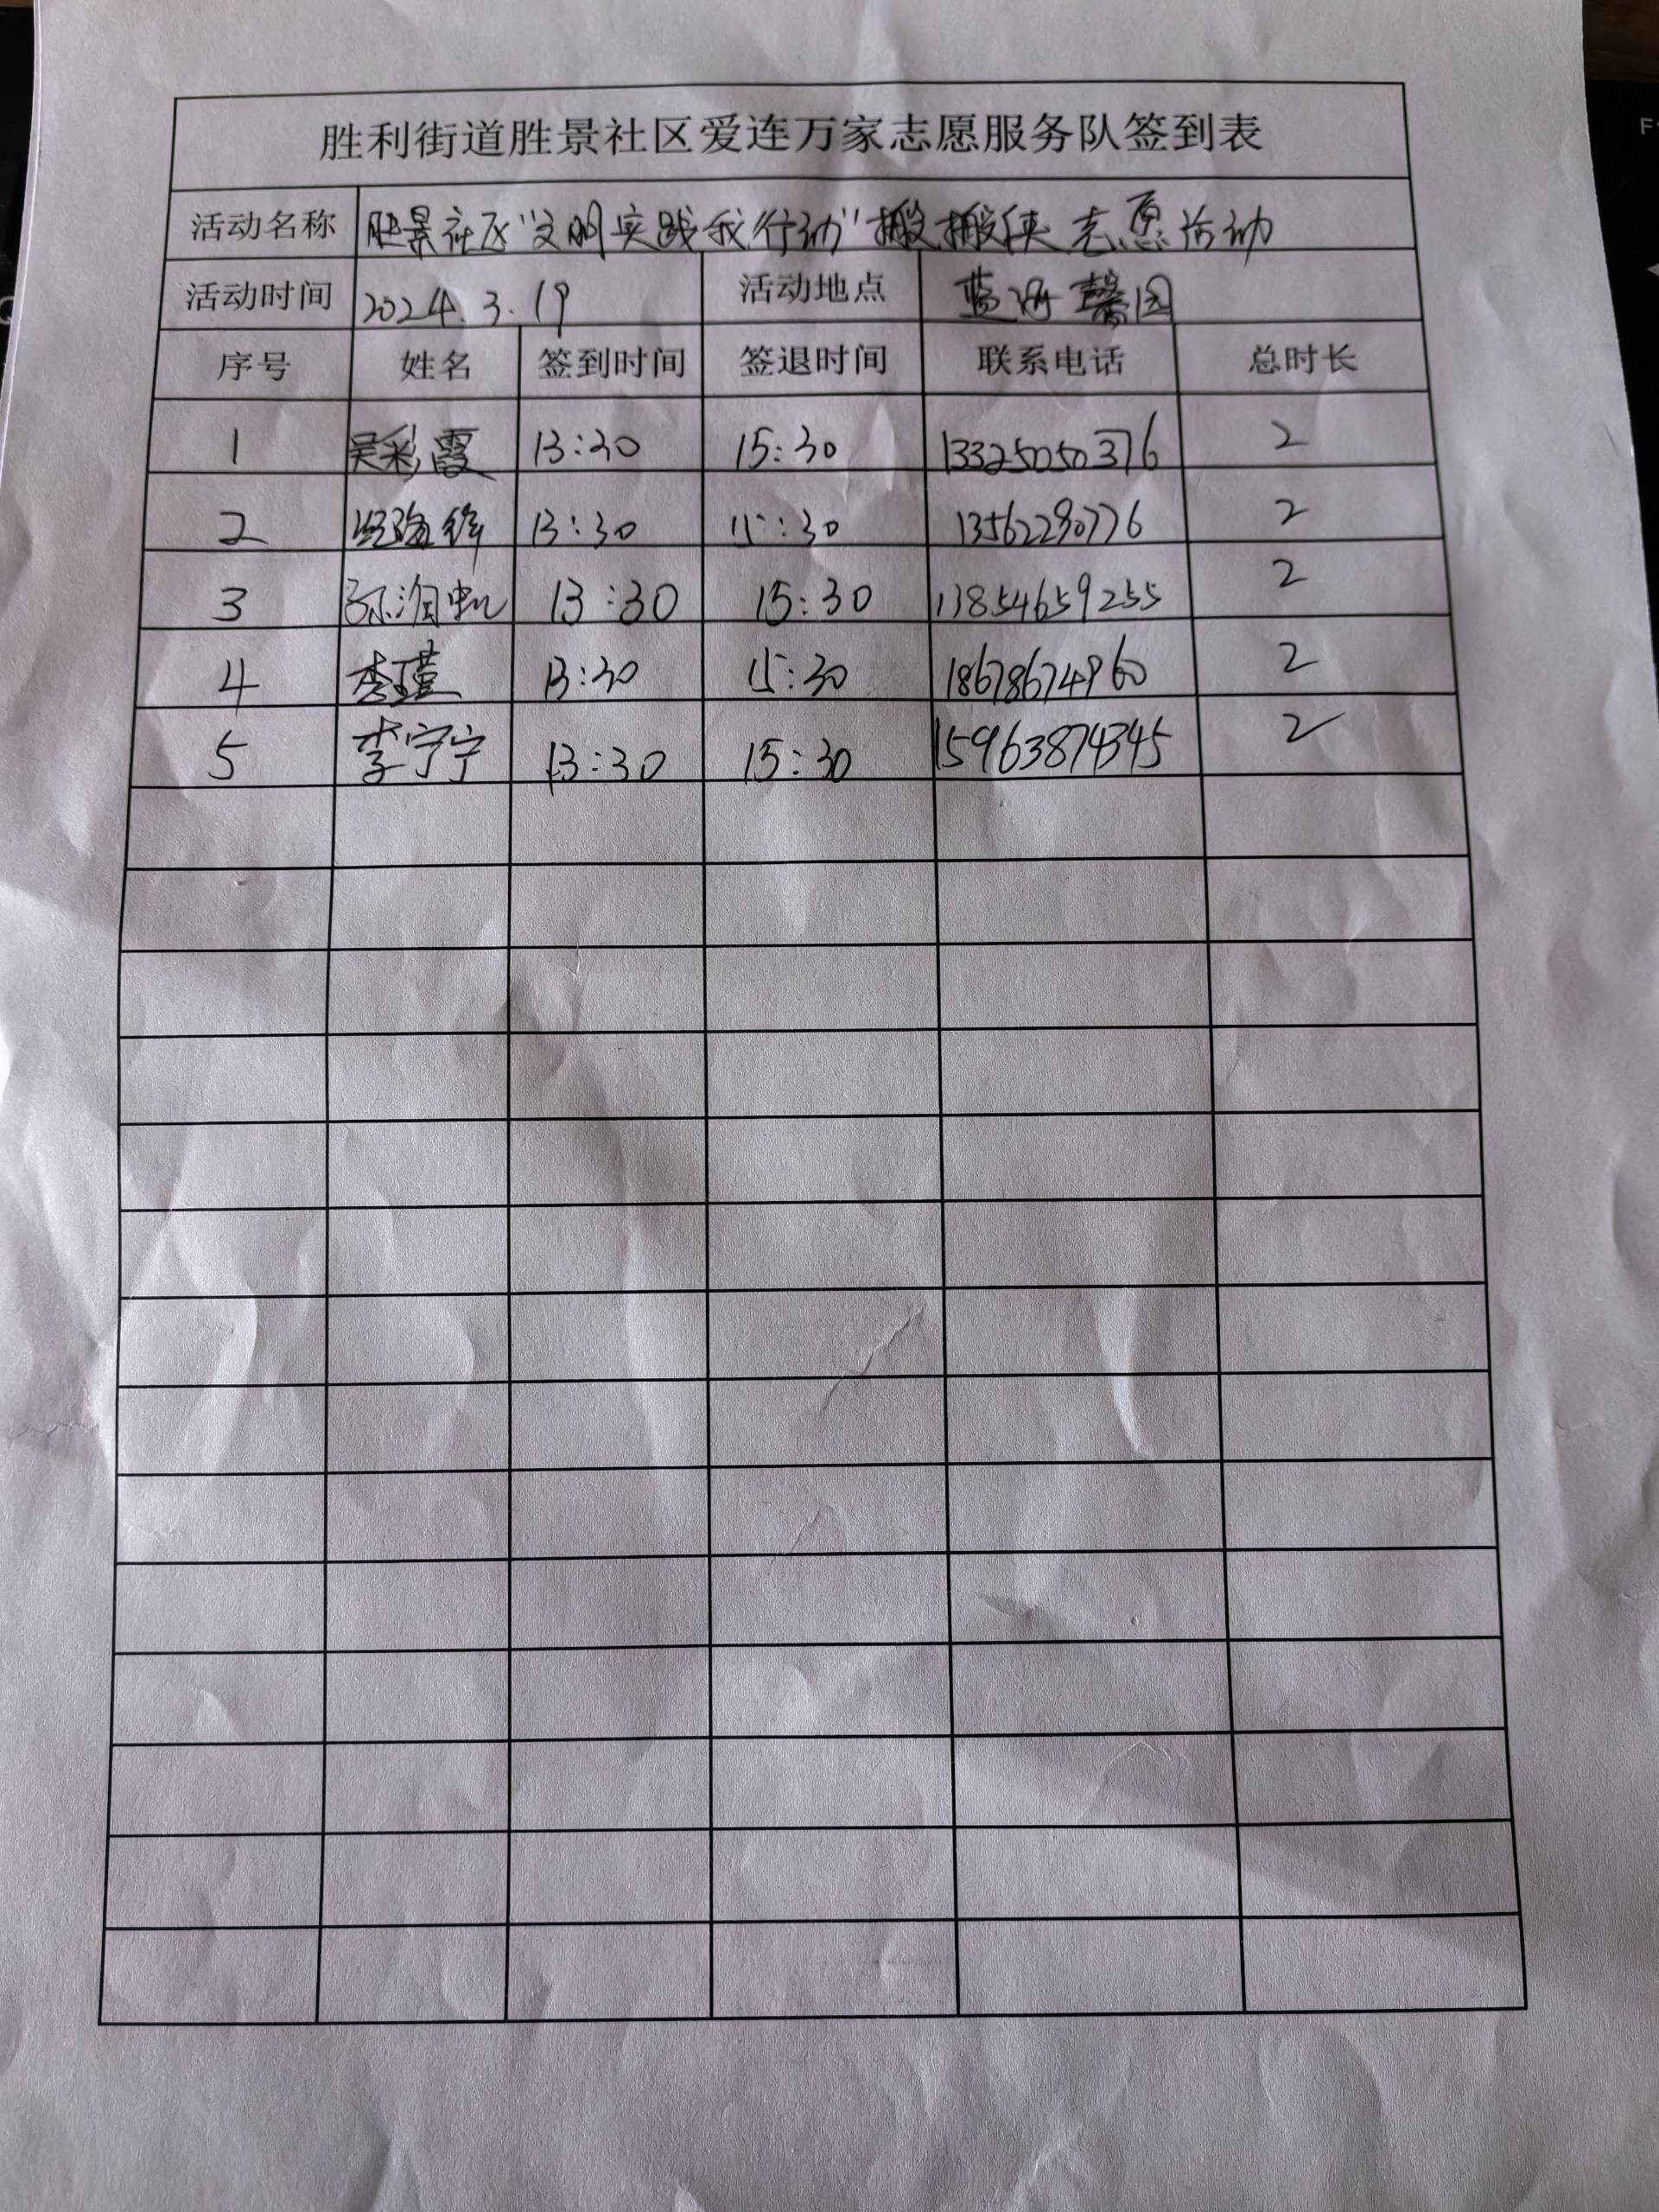 胜利街道胜景社区爱连万家志愿服务队签到表
活动名称 胜景社区"文明实践我行动"搬搬侠志愿活动
活动时间 2024.3.19 活动地点 蓝海馨园
序号 姓名 签到时间 签退时间 联系电话 总时长
1 吴彩霞 13:30 15:30 13325050376 2
2 13:30 15:30 13562290776 2
3 13:30 15:30 13854659255 2
4 李瑾 13:30 15:30 18678674960 2
5 李宁宁 13:30 15:30 15963874345 2